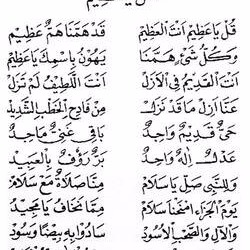 قُلْ يَا عَظِيمُ اَنْتَ الْعَظِيمُ قَدْ هَمَّنَا هَمٌّ عَظِيمٌ
وَكُلُّ شَيْءٍ هَمَّنَا يَهُونُ بِاسْمِكَ يَا عَظِيمُ
اَنْتَ الْقَدِيمُ فِي الْاَزَلِ اَنْتَ اللَّطِيفُ لَمْ تَزَلْ
عَنَّا اَزِلْ مَا قَدْ نَزَلَ مِنْ فَادِحِ الْخَطْبِ الشَّدِيدِ
حَيٌّ قَدِيمٌ وَاجِدُ بَاقِي غَنِيٌّ مَاجِدُ
عَدْلٌ اِلٰهٌ وَاحِدُ بَرٌّ رَؤُوفٌ بِالْعَبِيدِ
وَلِلنَّبِي صَلِّ يَا سَلَامُ مِنَّا صَلَاةً مَعْ سَلَامْ
يَوْمَ الْجَزَاءِ امْنَحْنَا سَلَامْ مِمَّا نَخَافُ يَا مَجِيدُ
وَالْاٰلِ وَالصَّحْبِ الْاُسُودِ سَادُوا بِهِ بِيضًا وَسُودْ